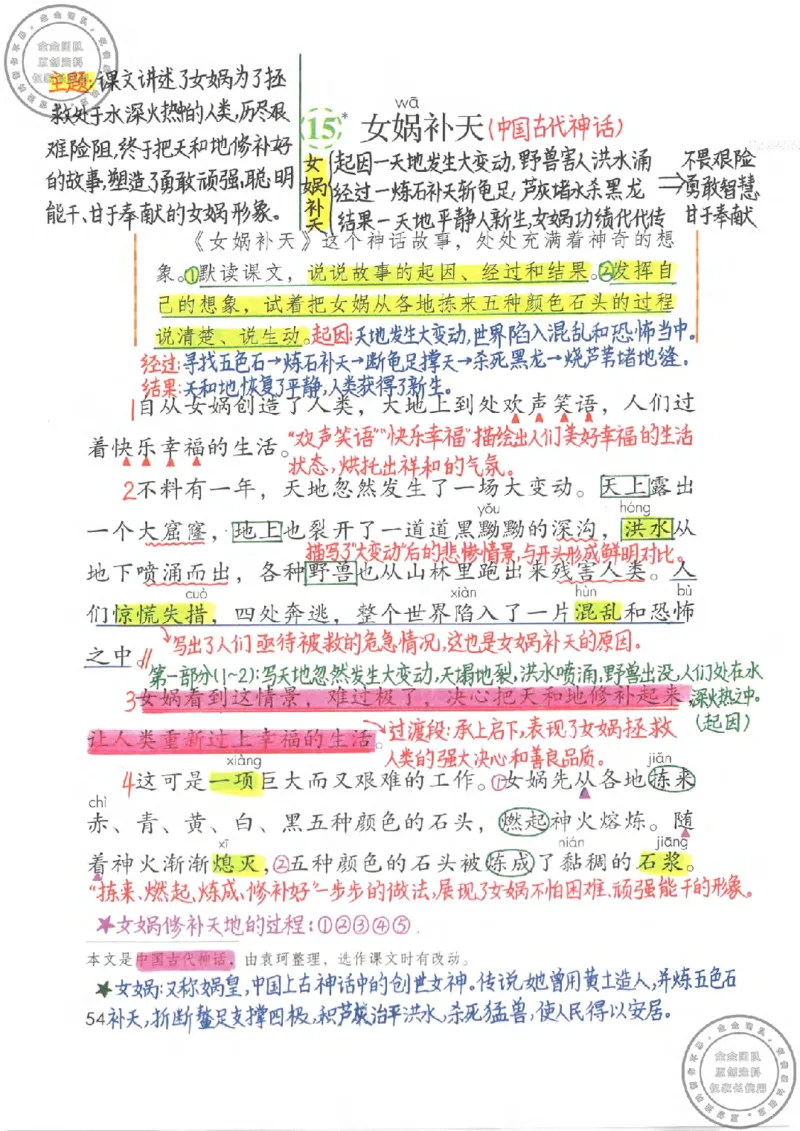 主题:课文讲述了女娲为了拯
救处于水深火热中的人类,历尽艰
难险阻,终于把天和地修补好
的故事,塑造了勇敢顽强、聪明
能干、甘于奉献的女娲形象。
wā
15* 女娲补天(中国古代神话)
女娲补天
起因—天地发生大变动,野兽害人洪水涌
经过—炼石补天斩龟足,芦灰堵水杀黑龙
结果—天地平静人新生,女娲功绩代代传
⇒
不畏艰险
勇敢智慧
甘于奉献
《女娲补天》这个神话故事,处处充满着神奇的想
象。①默读课文,说说故事的起因、经过和结果。②发挥自
己的想象,试着把女娲从各地拣来五种颜色石头的过程
说清楚、说生动。起因:天地发生大变动,世界陷入混乱和恐怖当中。
经过:寻找五色石→炼石补天→断龟足撑天→杀死黑龙→烧芦苇堵地缝。
结果:天和地恢复了平静,人类获得了新生。
1自从女娲创造了人类,大地上到处欢声笑语,人们过
着快乐幸福的生活。“欢声笑语”“快乐幸福”描绘出人们美好幸福的生活
状态,烘托出祥和的气氛。
2不料有一年,天地忽然发生了一场大变动。天上露出
yǒu hóng
一个大窟窿,地上也裂开了一道道黑黝黝的深沟,洪水从
描写了“大变动”后的悲惨情景,与开头形成鲜明对比。
地下喷涌而出,各种野兽也从山林里跑出来残害人类。人
cuò xiàn hùn bù
们惊慌失措,四处奔逃,整个世界陷入了一片混乱和恐怖
写出了人们亟待被救的危急情况,这也是女娲补天的原因。
之中。
第一部分(1~2):写天地忽然发生大变动,天塌地裂,洪水喷涌,野兽出没,人们处在水
深火热之中。
(起因)
3女娲看到这情景,难过极了,决心把天和地修补起来,
让人类重新过上幸福的生活。过渡段:承上启下,表现了女娲拯救
人类的强大决心和善良品质。
xiàng jiǎn
4这可是一项巨大而又艰难的工作。①女娲先从各地拣来
chì
赤、青、黄、白、黑五种颜色的石头,燃起神火熔炼。随
xī nián jiāng
着神火渐渐熄灭,②五种颜色的石头被炼成了黏稠的石浆。
“拣来、燃起、炼成、修补好”一步步的做法,展现了女娲不怕困难、顽强能干的形象。
★女娲修补天地的过程:①②③④⑤.
本文是中国古代神话,由袁珂整理,选作课文时有改动。
★女娲:又称娲皇,中国上古神话中的创世女神。传说,她曾用黄土造人,并炼五色石
54补天,折断鳌足支撑四极,积芦灰治平洪水,杀死猛兽,使人民得以安居。